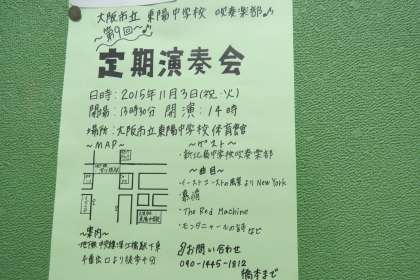 大阪市立 東陽中学校 吹奏楽部♪
〜第9回〜
定期演奏会
日時：2015年11月3日(祝・火)
開場：13時30分 開演：14時
場所：大阪市立東陽中学校体育館
〜MAP〜
〜ゲスト〜
・新北島中学校吹奏楽部
〜曲目〜
・イーストコーストの風景より New York
・暴
・The Red Machine
・モンタニャールの詩 など
〜案内〜
地下鉄 中央線 深江橋駅下車
出口より徒歩十分
お問い合わせ
090-1445-1812
橋本まで